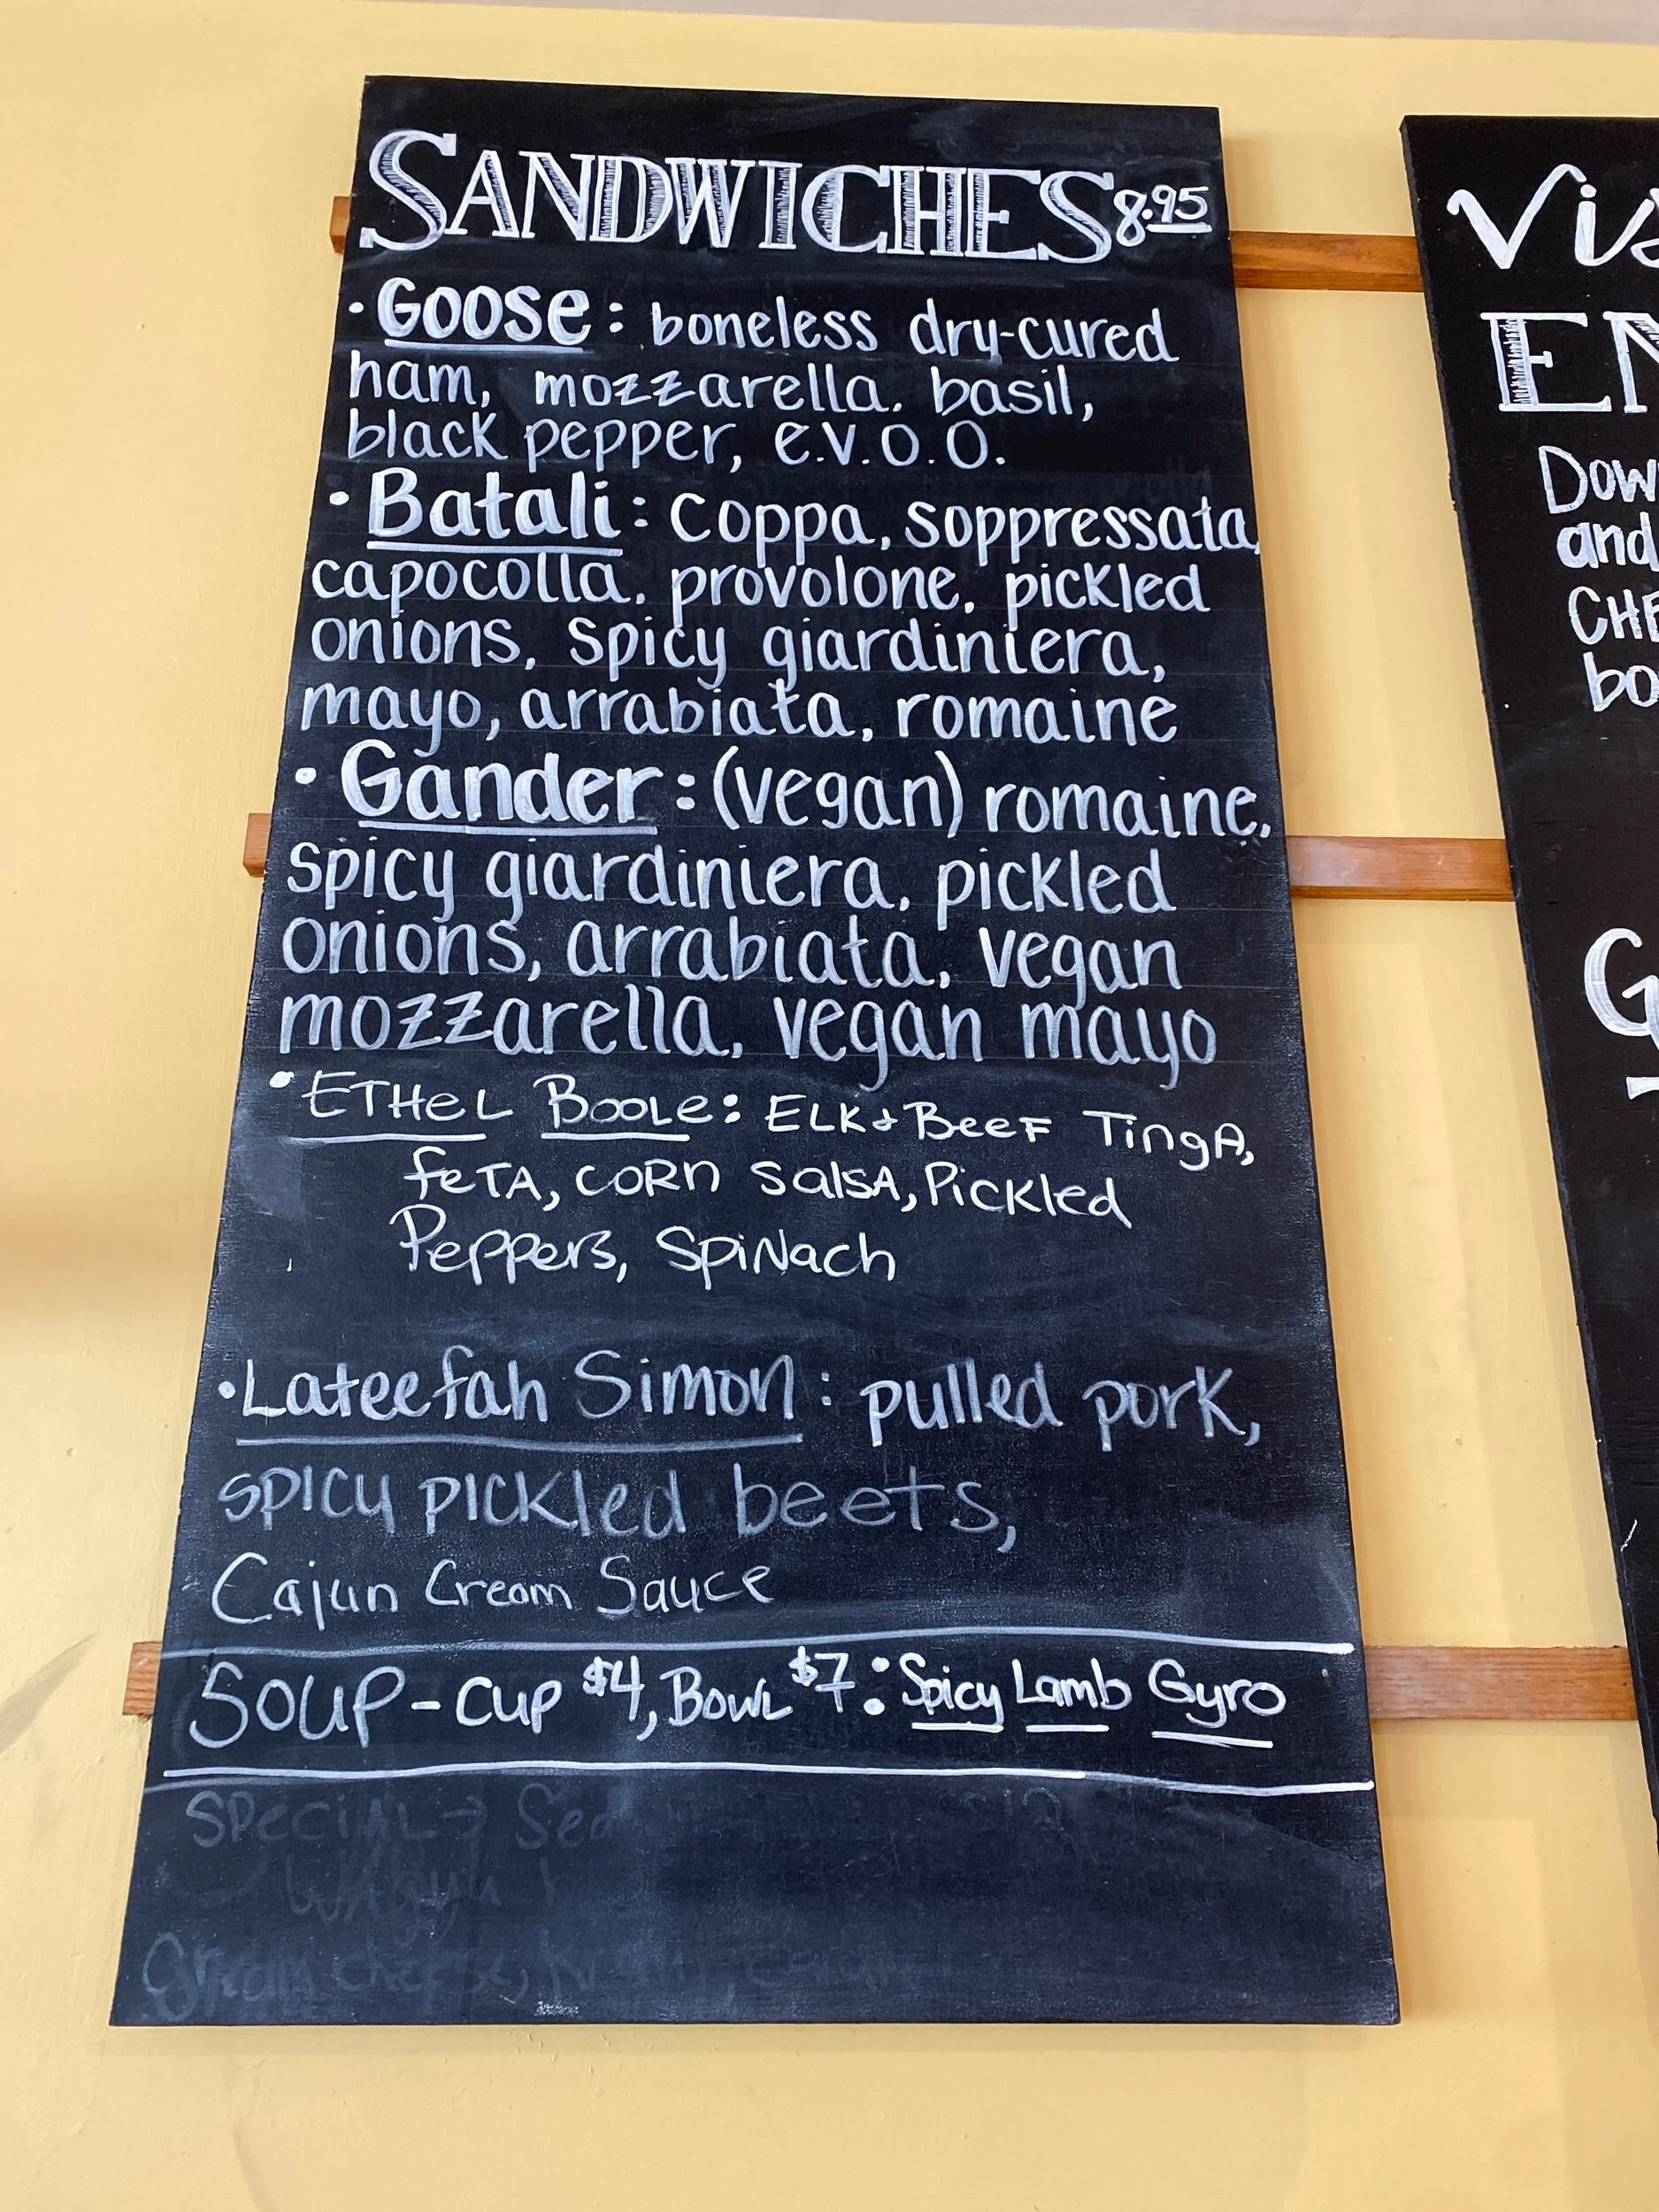 SANDWICHES 8.95
• GOOSE: boneless dry-cured
ham, mozzarella, basil,
black pepper, e.v.o.o.
• Batali: Coppa, soppressata,
capocolla, provolone, pickled
onions, spicy giardiniera,
mayo, arrabiata, romaine
• Gander: (vegan) romaine,
spicy giardiniera, pickled
onions, arrabiata, vegan
mozzarella, vegan mayo
• ETHeL BOOLe: ELK + BeeF TingA,
feTA, CORn SalsA, Pickled
Peppers, SpiNach
• Lateefah Simon: pulled pork,
spicy pickled beets,
Cajun Cream Sauce
SOUP - Cup $4, Bowl $7: Spicy Lamb Gyro
SPeCiAL →
WAgyu
cheese,
Vis
EN
Dow
and
CHE
bo
G